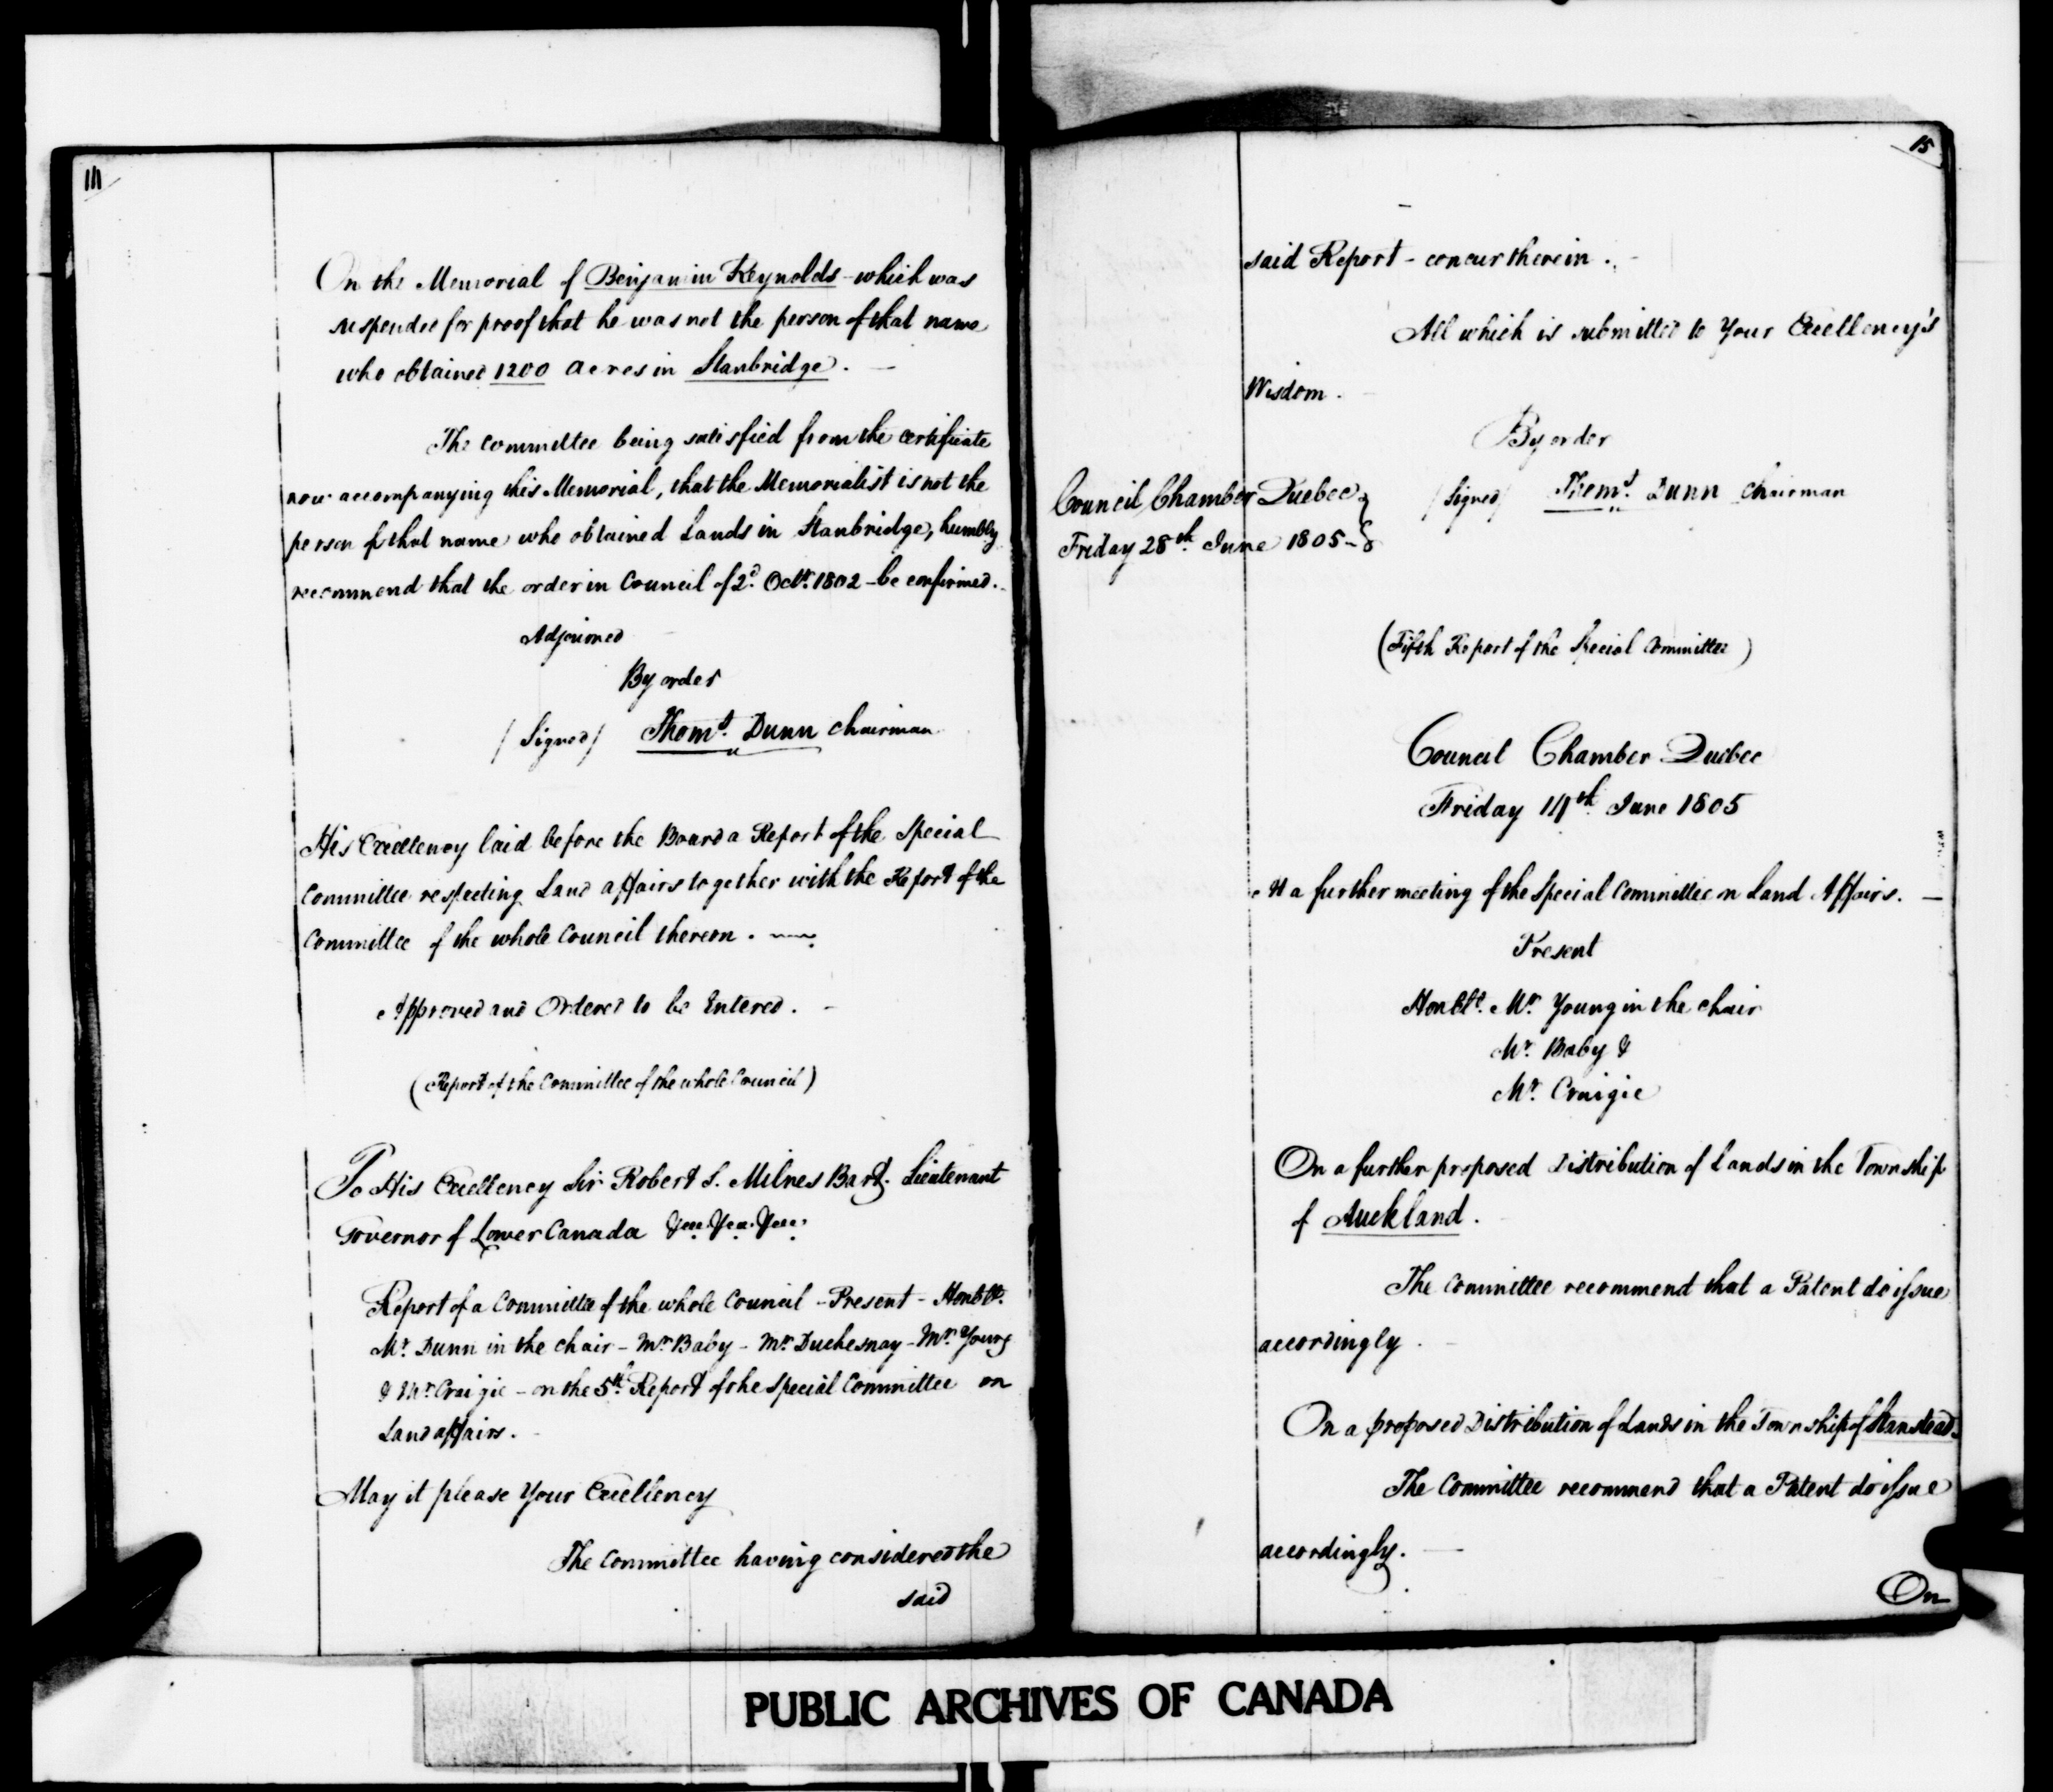 14
On the Memorial of Benjamin Reynolds - which was
suspended for proof that he was not the person of that name
who obtained 1200 acres in Stanbridge. —
The committee being satisfied from the certificate
now accompanying this Memorial, that the Memorialist is not the
person of that name who obtained Lands in Stanbridge, humbly
recommend that the order in Council of 2d. Octr. 1802 - be confirmed. -
Adjourned
By order
/Signed/ Thoms. Dunn Chairman
His Excellency laid before the Board a Report of the Special
Committee respecting Land affairs together with the Report of the
Committee of the whole Council thereon.
Approved and Ordered to be Entered. -
(Report of the Committee of the whole Council)
To His Excellency Sir Robert S. Milnes Bart. Lieutenant
Governor of Lower Canada &ca. &ca. &ca.
Report of a Committee of the whole Council - Present - Honble.
Mr. Dunn in the chair - Mr. Baby - Mr. Duchesnay - Mr. Young
& Mr. Craigie - on the 5th. Report of the Special Committee on
Land affairs. -
May it please Your Excellency
The Committee having considered the
said
15
said Report - concur therein. -
All which is submitted to Your Excellency's
Wisdom.
By order
Council Chamber Quebec } /Signed/ Thoms. Dunn Chairman
Friday 28th. June 1805 -
(Fifth Report of the Special Committee)
Council Chamber Quebec
Friday 14th. June 1805
At a further meeting of the Special Committee on Land Affairs. —
Present
Honble. Mr. Young in the chair
Mr. Baby &
Mr. Craigie
On a further proposed Distribution of Lands in the Township
of Auckland.
The Committee recommend that a Patent do issue
accordingly.
On a proposed Distribution of Lands in the Township of Stanstead.
The Committee recommend that a Patent do issue
accordingly. —
On
PUBLIC ARCHIVES OF CANADA